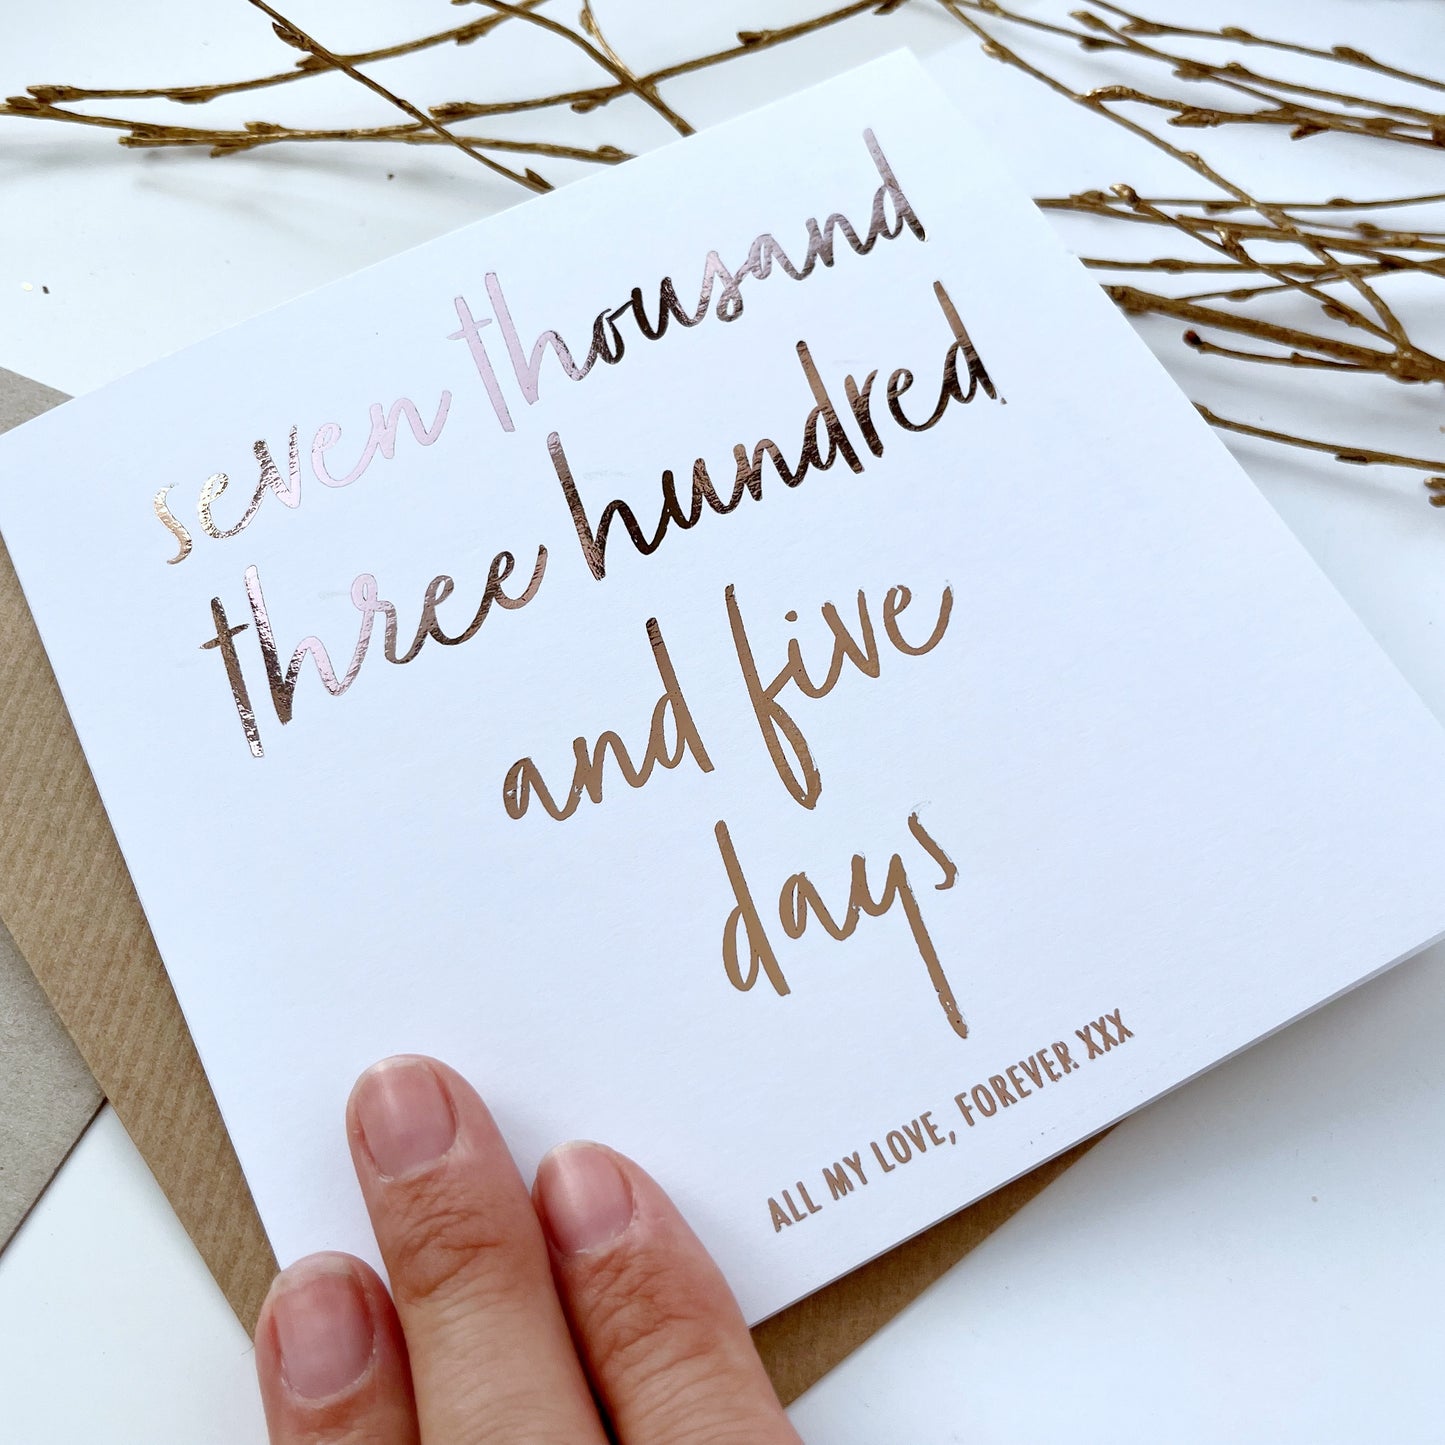 seven thousand
three hundred
and five
days
ALL MY LOVE, FOREVER XXX